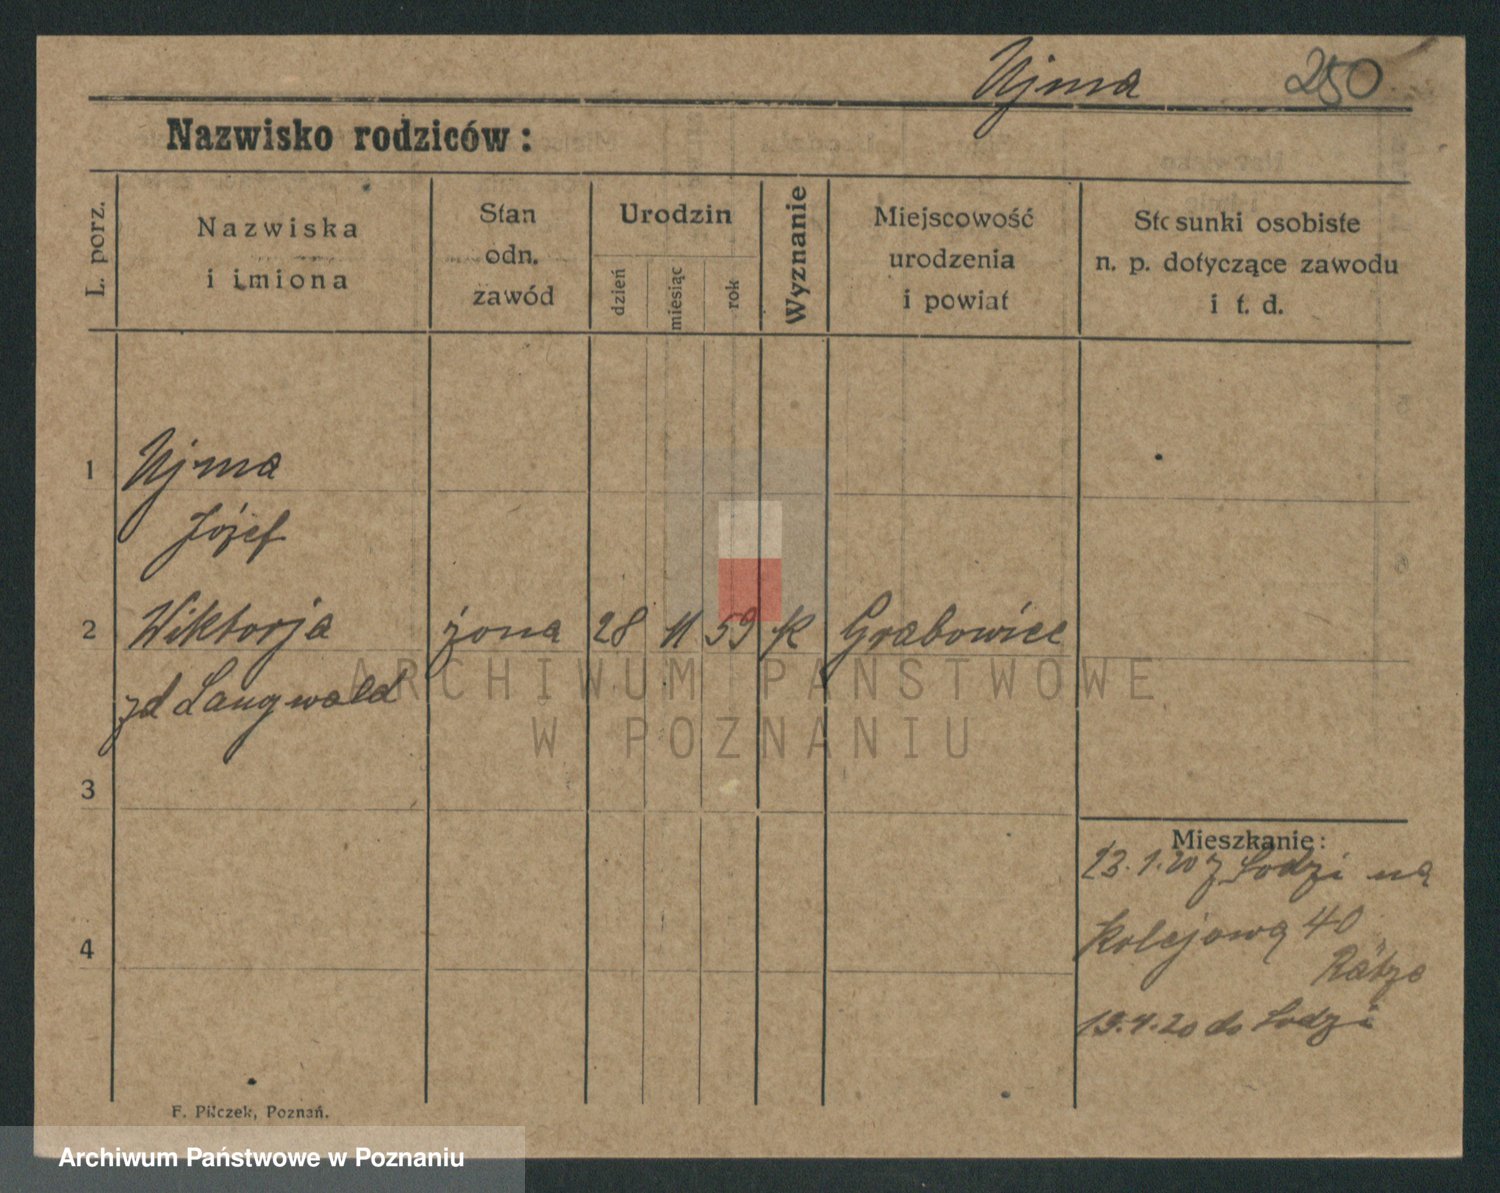 Ujma 250
Nazwisko rodziców:
L. porz.
Nazwiska
i imiona
Stan
odn.
zawód
Urodzin
dzień
miesiąc
rok
Wyznanie
Miejscowość
urodzenia
i powiat
Stosunki osobiste
n. p. dotyczące zawodu
i t. d.
1 Ujma
Józef
2 Wiktorja żona 28 11 59 K Grabowiec
zd Langwald
3
4
Mieszkanie:
23.1.20 z Łodzi na
Kolejową 40
Rätze
19.4.20 do Łodzi
F. Pilczek, Poznań.
ARCHIWUM PAŃSTWOWE
W POZNANIU
Archiwum Państwowe w Poznaniu